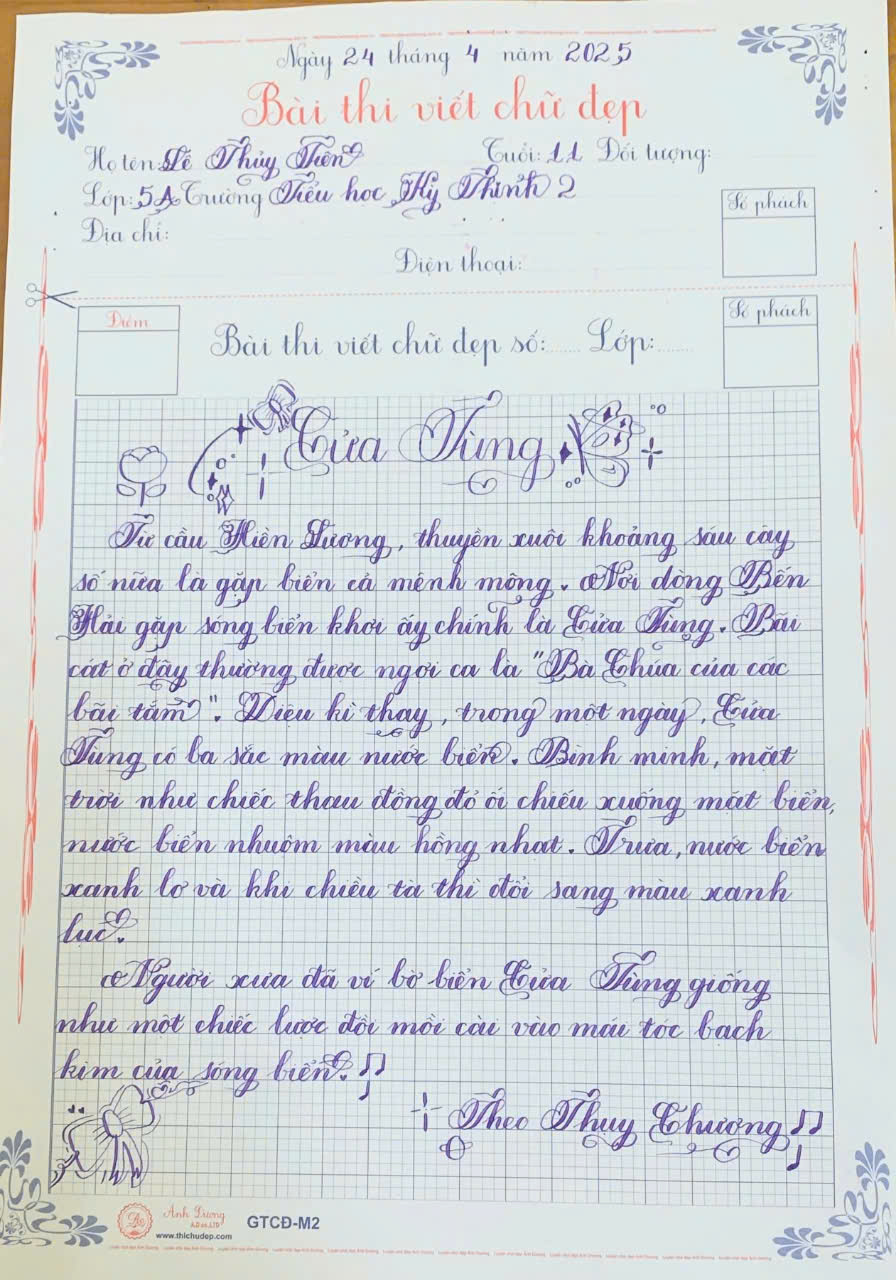 Ngày 24 tháng 4 năm 2025
Bài thi viết chữ đẹp
Họ tên: Lê Thủy Tiên Tuổi: 11 Đối tượng:
Lớp: 5A Trường Tiểu học Kỳ Thịnh 2
Địa chỉ:
Số phách
Điện thoại:
Điểm
Bài thi viết chữ đẹp số:...... Lớp:......
Số phách
Cửa Tùng
Từ cầu Hiền Lương, thuyền xuôi khoảng sáu cây
số nữa là gặp biển cả mênh mông. Nơi dòng Bến
Hải gặp sóng biển khơi ấy chính là Cửa Tùng. Bãi
cát ở đây thường được ngợi ca là "Bà Chúa của các
bãi tắm". Diệu kì thay, trong một ngày, Cửa
Tùng có ba sắc màu nước biển. Bình minh, mặt
trời như chiếc thau đồng đỏ ối chiếu xuống mặt biển,
nước biển nhuộm màu hồng nhạt. Trưa, nước biển
xanh lơ và khi chiều tà thì đổi sang màu xanh
lục.
Người xưa đã ví bờ biển Cửa Tùng giống
như một chiếc lược đồi mồi cài vào mái tóc bạch
kim của sóng biển.
Theo Thụy Chương
Ánh Dương
A.D co.,LTD
www.thichudep.com
GTCĐ-M2